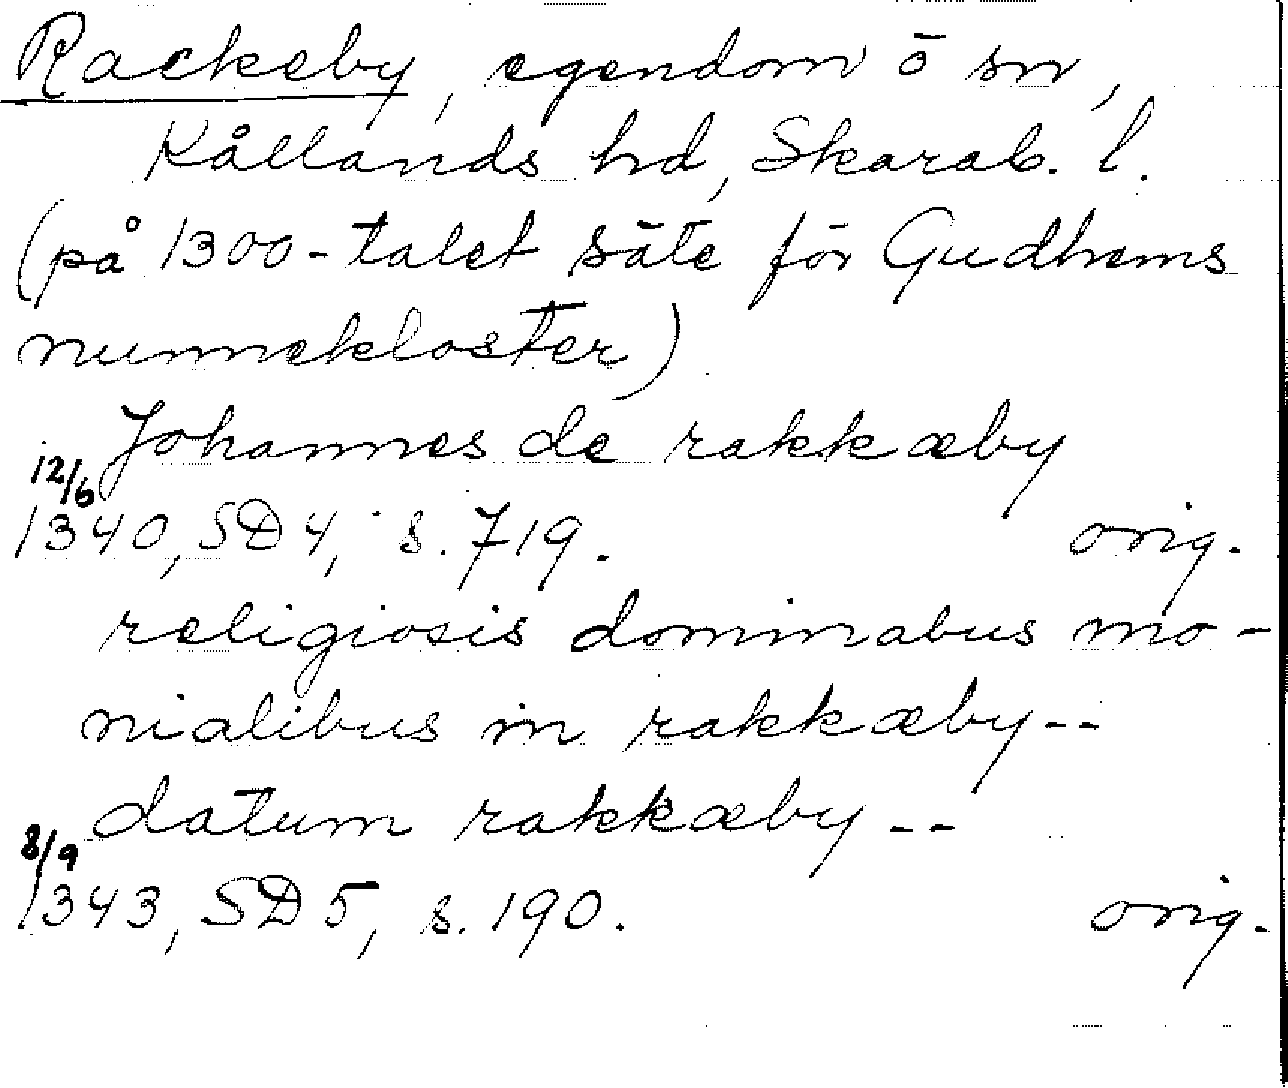 Rackeby, egendom ō sn,
Kållands hd, Skarab. l.
(på 1300-talet säte för Gudhems
nunnekloster)
Johannes de rakkæby
12/6
1340, SD 4, s. 719. orig.
religiosis dominabus mo-
nialibus in rakkæby--
datum rakkæby --
8/9
1343, SD 5, s. 190. orig.